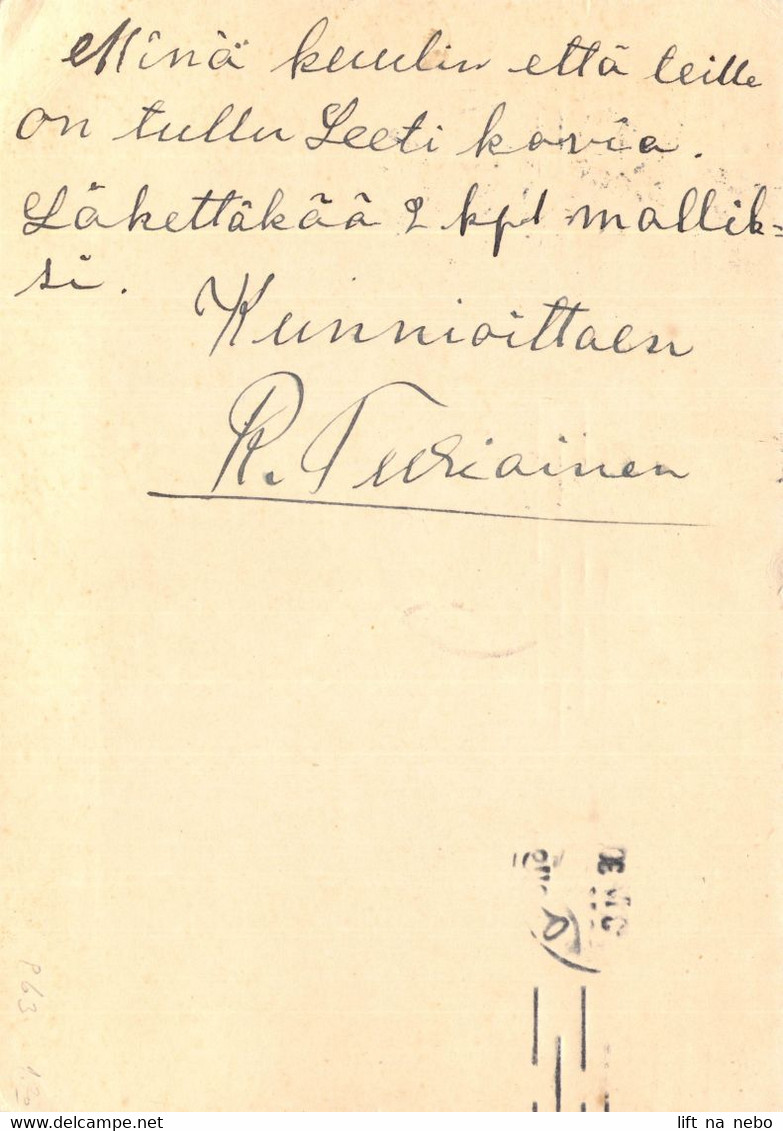 Minä kuulin että teille
on tullu Leeti kovia.
Läkettäkää 2 kpl mallik=
si.
Kunnioittaen
R. Turiainen
P63
lift na nebo